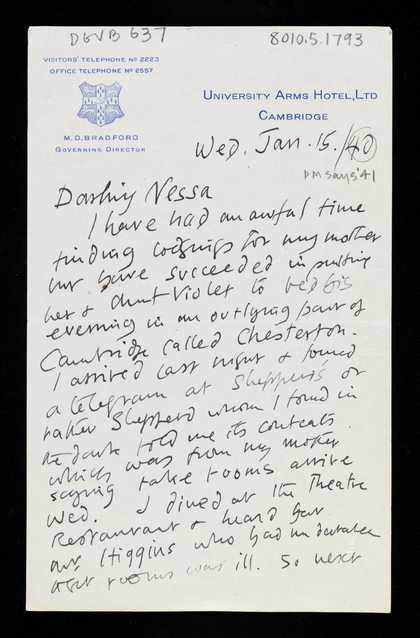 DGVB 637
8010.5.1793
VISITORS' TELEPHONE Nº 2223
OFFICE TELEPHONE Nº 2557
UNIVERSITY ARMS HOTEL, LTD
CAMBRIDGE
M.D. BRADFORD
GOVERNING DIRECTOR
Wed. Jan. 15. /40
DM says '41
Darling Nessa
I have had an awful time
finding lodgings for my mother
but have succeeded in putting
her & Aunt Violet to bed this
evening in an outlying part of
Cambridge called Chesterton.
I arrived last night & found
a telegram at Sheppard's or
rather Sheppard whom I found in
the dark told me its contents
which was from my mother
saying take rooms arrive
Wed. I dined at the Theatre
Restaurant & heard that
Higgins who had undertaken
rooms was ill. So next